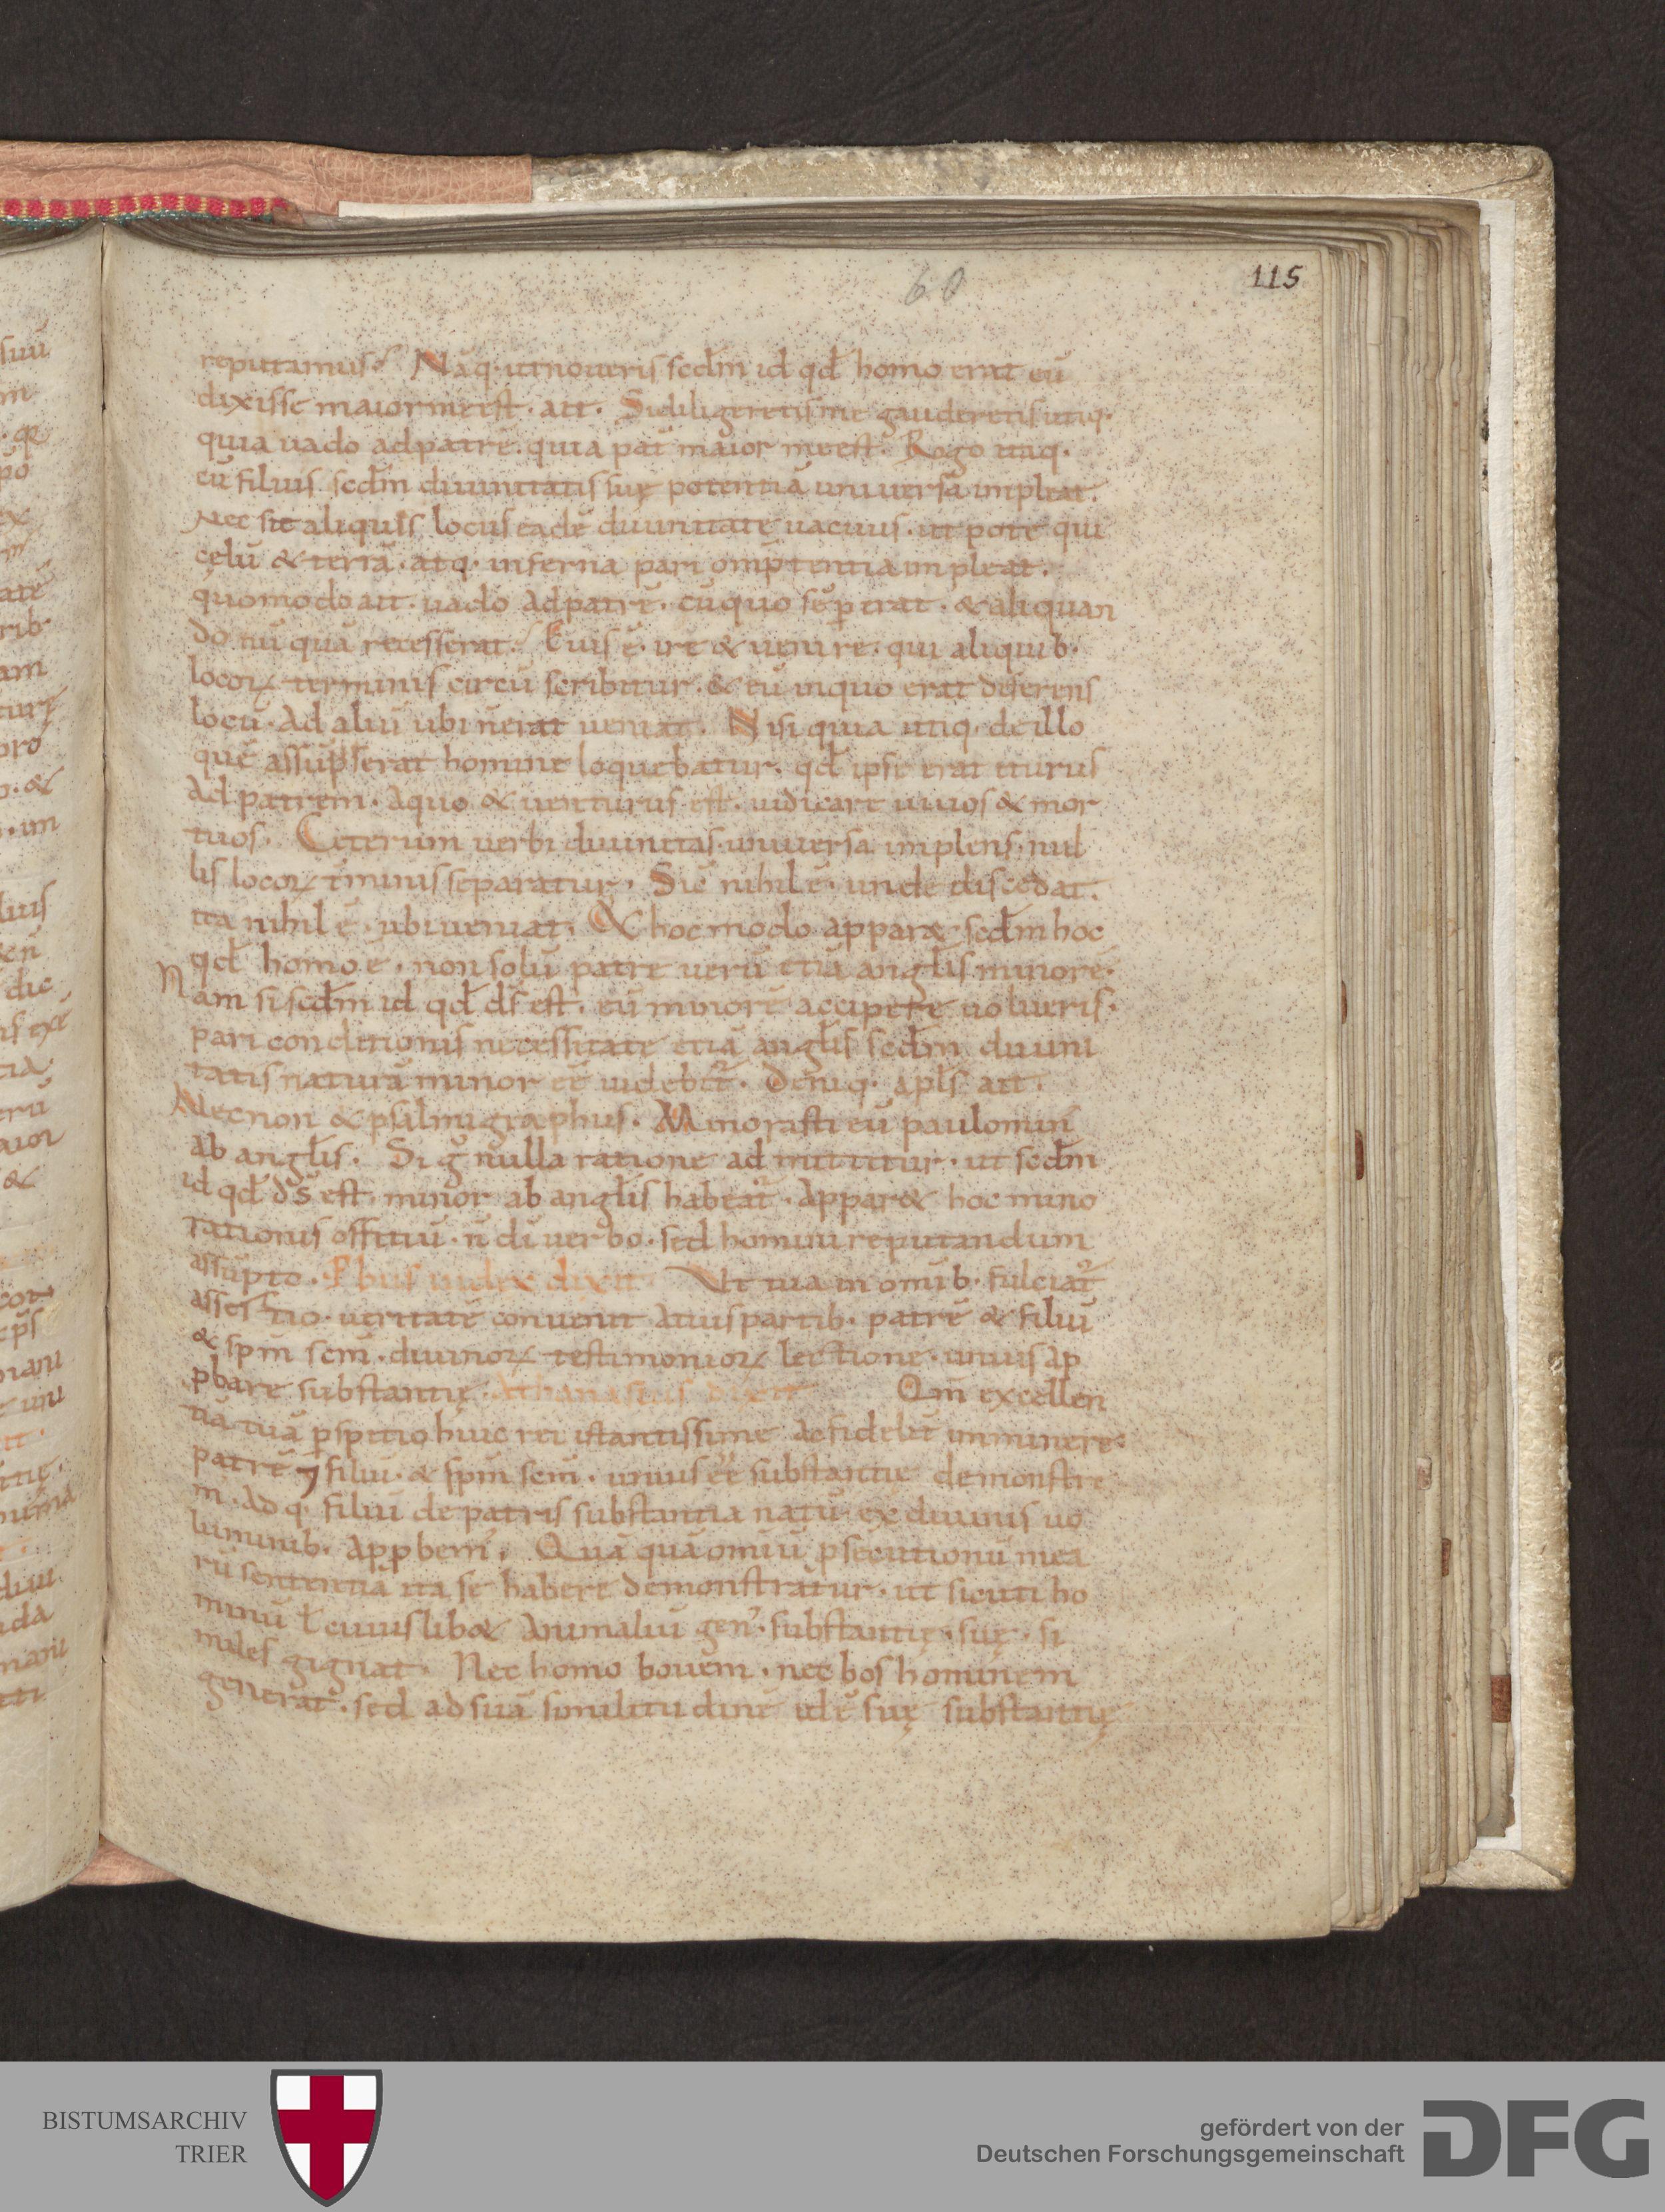 60
115
reputamus? Nāq· ut noueris scdm̄ id qđ homo erat eū
dixisse maior me est· ait· Si diligeretis me gauderetis utiq·
quia uado ad patrē· quia pat̄ maior me est· Rogo itaq·
cū filius scdm̄ diuinitatis suę potentiā uniuersa impleat·
Nec sit aliquis locus eadē diuinitate uacuus· ut pote qui
cęlū & terrā· atq· inferna pari omīptentia impleat·
quomodo ait· uado ad patrē· cū quo sēp erat· & aliquan
do nūquā recesserat? Eius ē· ire & uenire· qui aliquib·
locoꝝ terminis circūscribitur· & eū in quo erat deserens
locū· ad aliū ubi n̄ erat ueniat· Nisi quia utiq· de illo
quē assūpserat homine loquebatur· qđ ipse erat iturus
ad patrem· a quo & uenturus est· iudicare uiuos & mor
tuos· Ceterum uerbi diuinitas· uniuersa implens· nul
lis locoꝝ t̄minis separatur· Sic nihil ē· unde discedat·
ita nihil ē· ubi ueniat· & hoc modo appar&· scdm̄ hoc
qđ homo ē· non solū patre uerū etiā angl̄is minorē·
Nam si scdm̄ id qđ ds̄ est· eū minorē accipere uolueris·
pari conditionis necessitate etiā angl̄is scdm̄ diuini
tatis naturā minor eē uidebit̄· Deniq· apl̄s ait·
Nec non & psalmigraphus· Minorasti eū paulomin̄
ab angl̄is· Si g° nulla ratione admittitur· ut scdm̄
id qđ ds̄ est· minor ab angl̄is habeat̄· appar& hoc mino
rationis offitiū· n̄ di uerbo· sed homini reputandum
assūpto· Pbus iudex dixit· Ut tua in omib· fulciat̄
assertio· ueritatē conuenit a tuis partib· patrē & filiū
& spm̄ scm̄· diuinoꝝ testimonioꝝ lectione· unius ap
pbare substantię· Athanasius dixit Qm̄ excellen
tiā tuā pspitio huic rei istantissime ac fidelit̄ imminere·
patrē ⁊ filiū· & spm̄ scm̄· unius eē substantię demonstre
m· ad q· filiū de patris substantia natū· ex diuinis uo
luminib· appbem̄· Quāquā omiū psecutionū mea
rū sententia ita se habere demonstratur· ut sicuti ho
minū ł cuiuslib& animaliū gen· substantię suę· si
miles gignat· Nec homo bouem· nec bos hominem
generat· sed ad suā similitudinē idē suę substantię
BISTUMSARCHIV
TRIER
gefördert von der
Deutschen Forschungsgemeinschaft
DFG